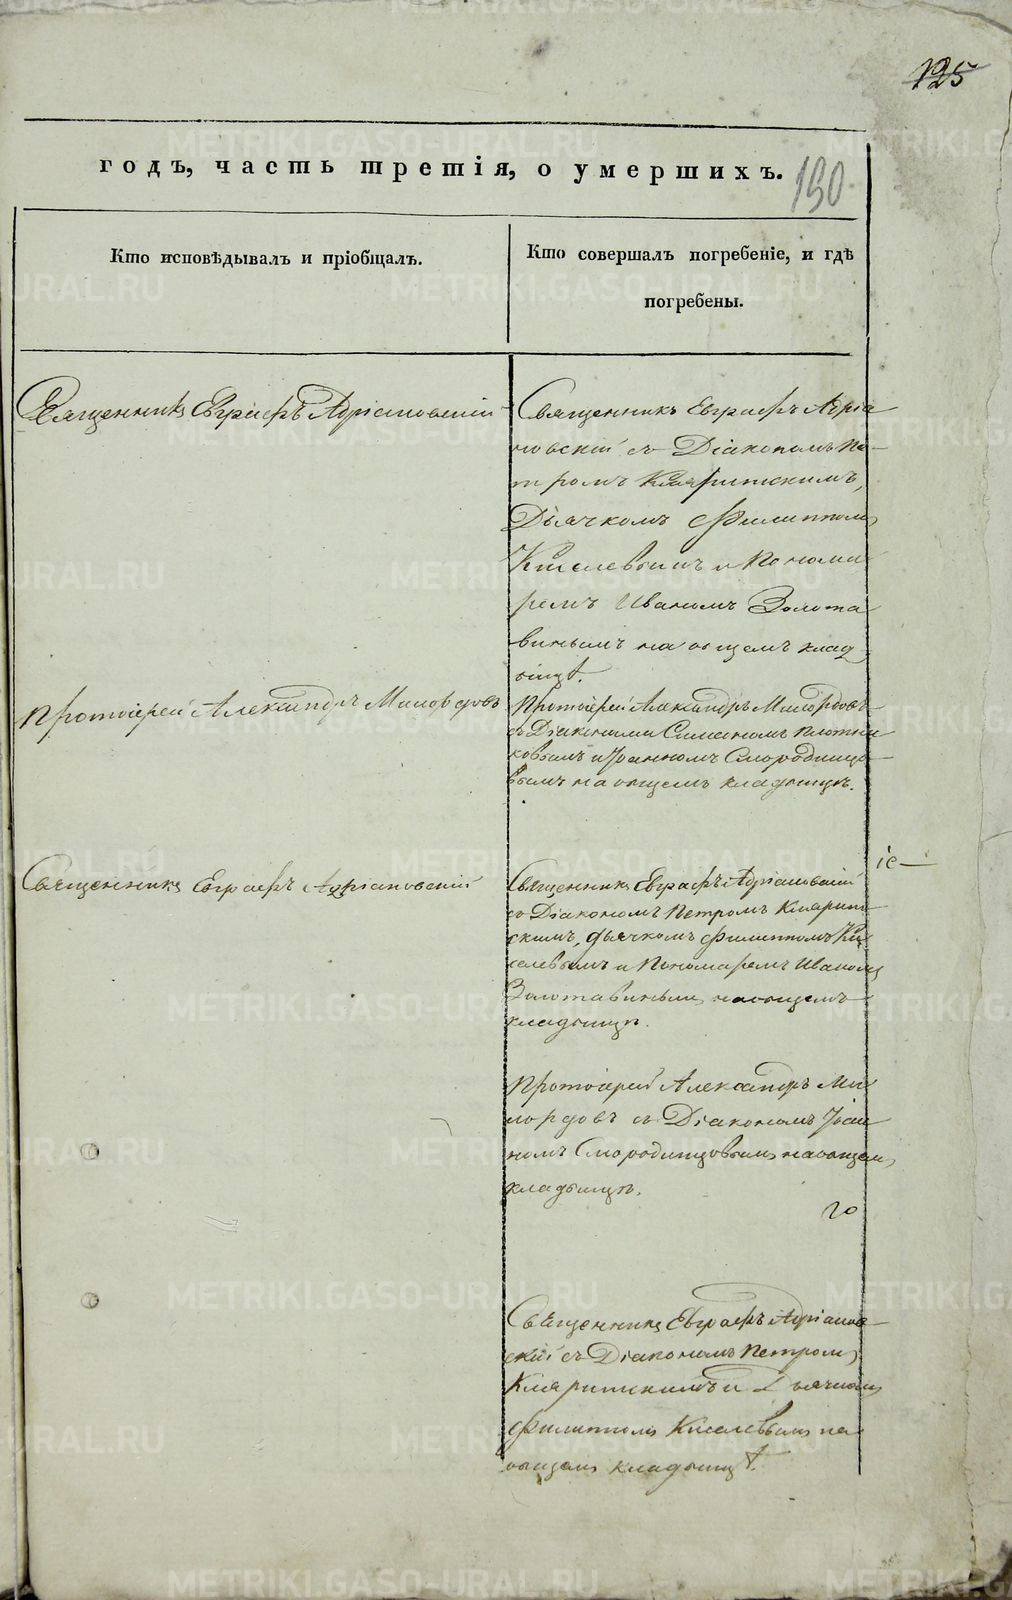 125
годъ, часть третія, о умершихъ.
190
Кто исповѣдывалъ и пріобщалъ.
Кто совершалъ погребеніе, и гдѣ
погребены.
Священникъ Евграфъ Адріановскій
Священникъ Евграфъ Адріа
новскій съ Діакономъ Пе-
тромъ Кляритскимъ,
Дьячкомъ Филиппомъ
Киселевымъ и Понома
ремъ Иваномъ Золота
винымъ на общемъ клад
бищѣ.
Протоіерей Александръ Милордовъ
Протоіерей Александръ Милордовъ
съ Діаконами Симеономъ Плотни
ковымъ и Іоанномъ Смородинце
вымъ на общемъ кладбищѣ.
іе
Священникъ Евграфъ Адріановскій
Священникъ Евграфъ Адріановскій
съ Діакономъ Петромъ Кляритт
скимъ, дьячкомъ Филиппомъ Ки
селевымъ и Пономаремъ Иваномъ
Золотавинымъ на общемъ
кладбищѣ.
Протоіерей Александръ Ми
лордовъ съ Діакономъ Іоан
номъ Смородинцовымъ на общемъ
кладбищѣ.
го
Священникъ Евграфъ Адріанов
скій съ Діакономъ Петромъ
Кляритскимъ и Дьячкомъ
Филиппомъ Киселевымъ на
общемъ кладбищѣ.
METRIKI.GASO-URAL.RU